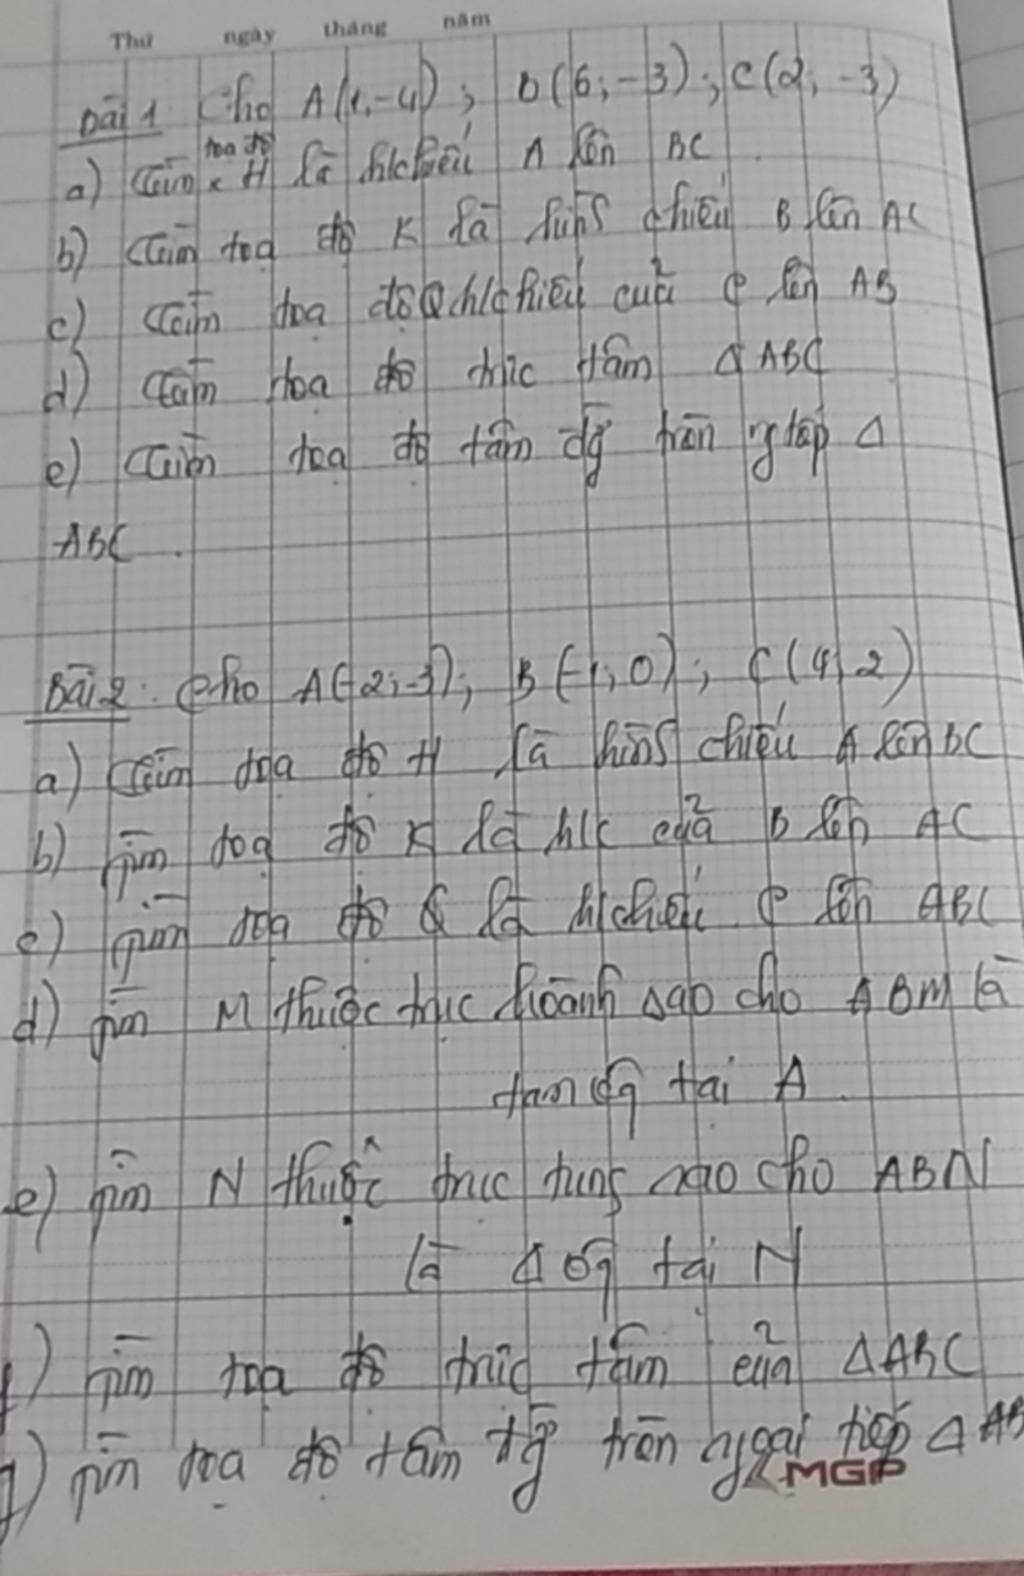 Thứ ngày tháng năm
Bài 1 Cho A(1,-4); B(6;-3); C(2;-3)
toạ độ
a) Tìm H là h/chiếu A lên BC
b) Tìm toạ độ K là hình chiếu B lên AC
c) Tìm toạ độ Q h/chiếu của C lên AB
d) Tìm toạ độ trực tâm Δ ABC
e) Tìm toạ độ tâm đg tròn ng tiếp Δ
ABC.
Bài 2: Cho A(-2;-3); B(-1;0); C(4,2)
a) Tìm toạ độ H là hình chiếu A lên BC
b) Tìm toạ độ K là h/c của B lên AC
c) Tìm toạ độ Q là h/chiếu C lên ABC
d) Tìm M thuộc trục hoành sao cho ABM là
tam giác tại A.
e) Tìm N thuộc trục tung sao cho ABN
là Δ tại N
f) Tìm toạ độ trực tâm của ΔABC
g) Tìm toạ độ tâm đg tròn ngoại tiếp Δ AB
MGP